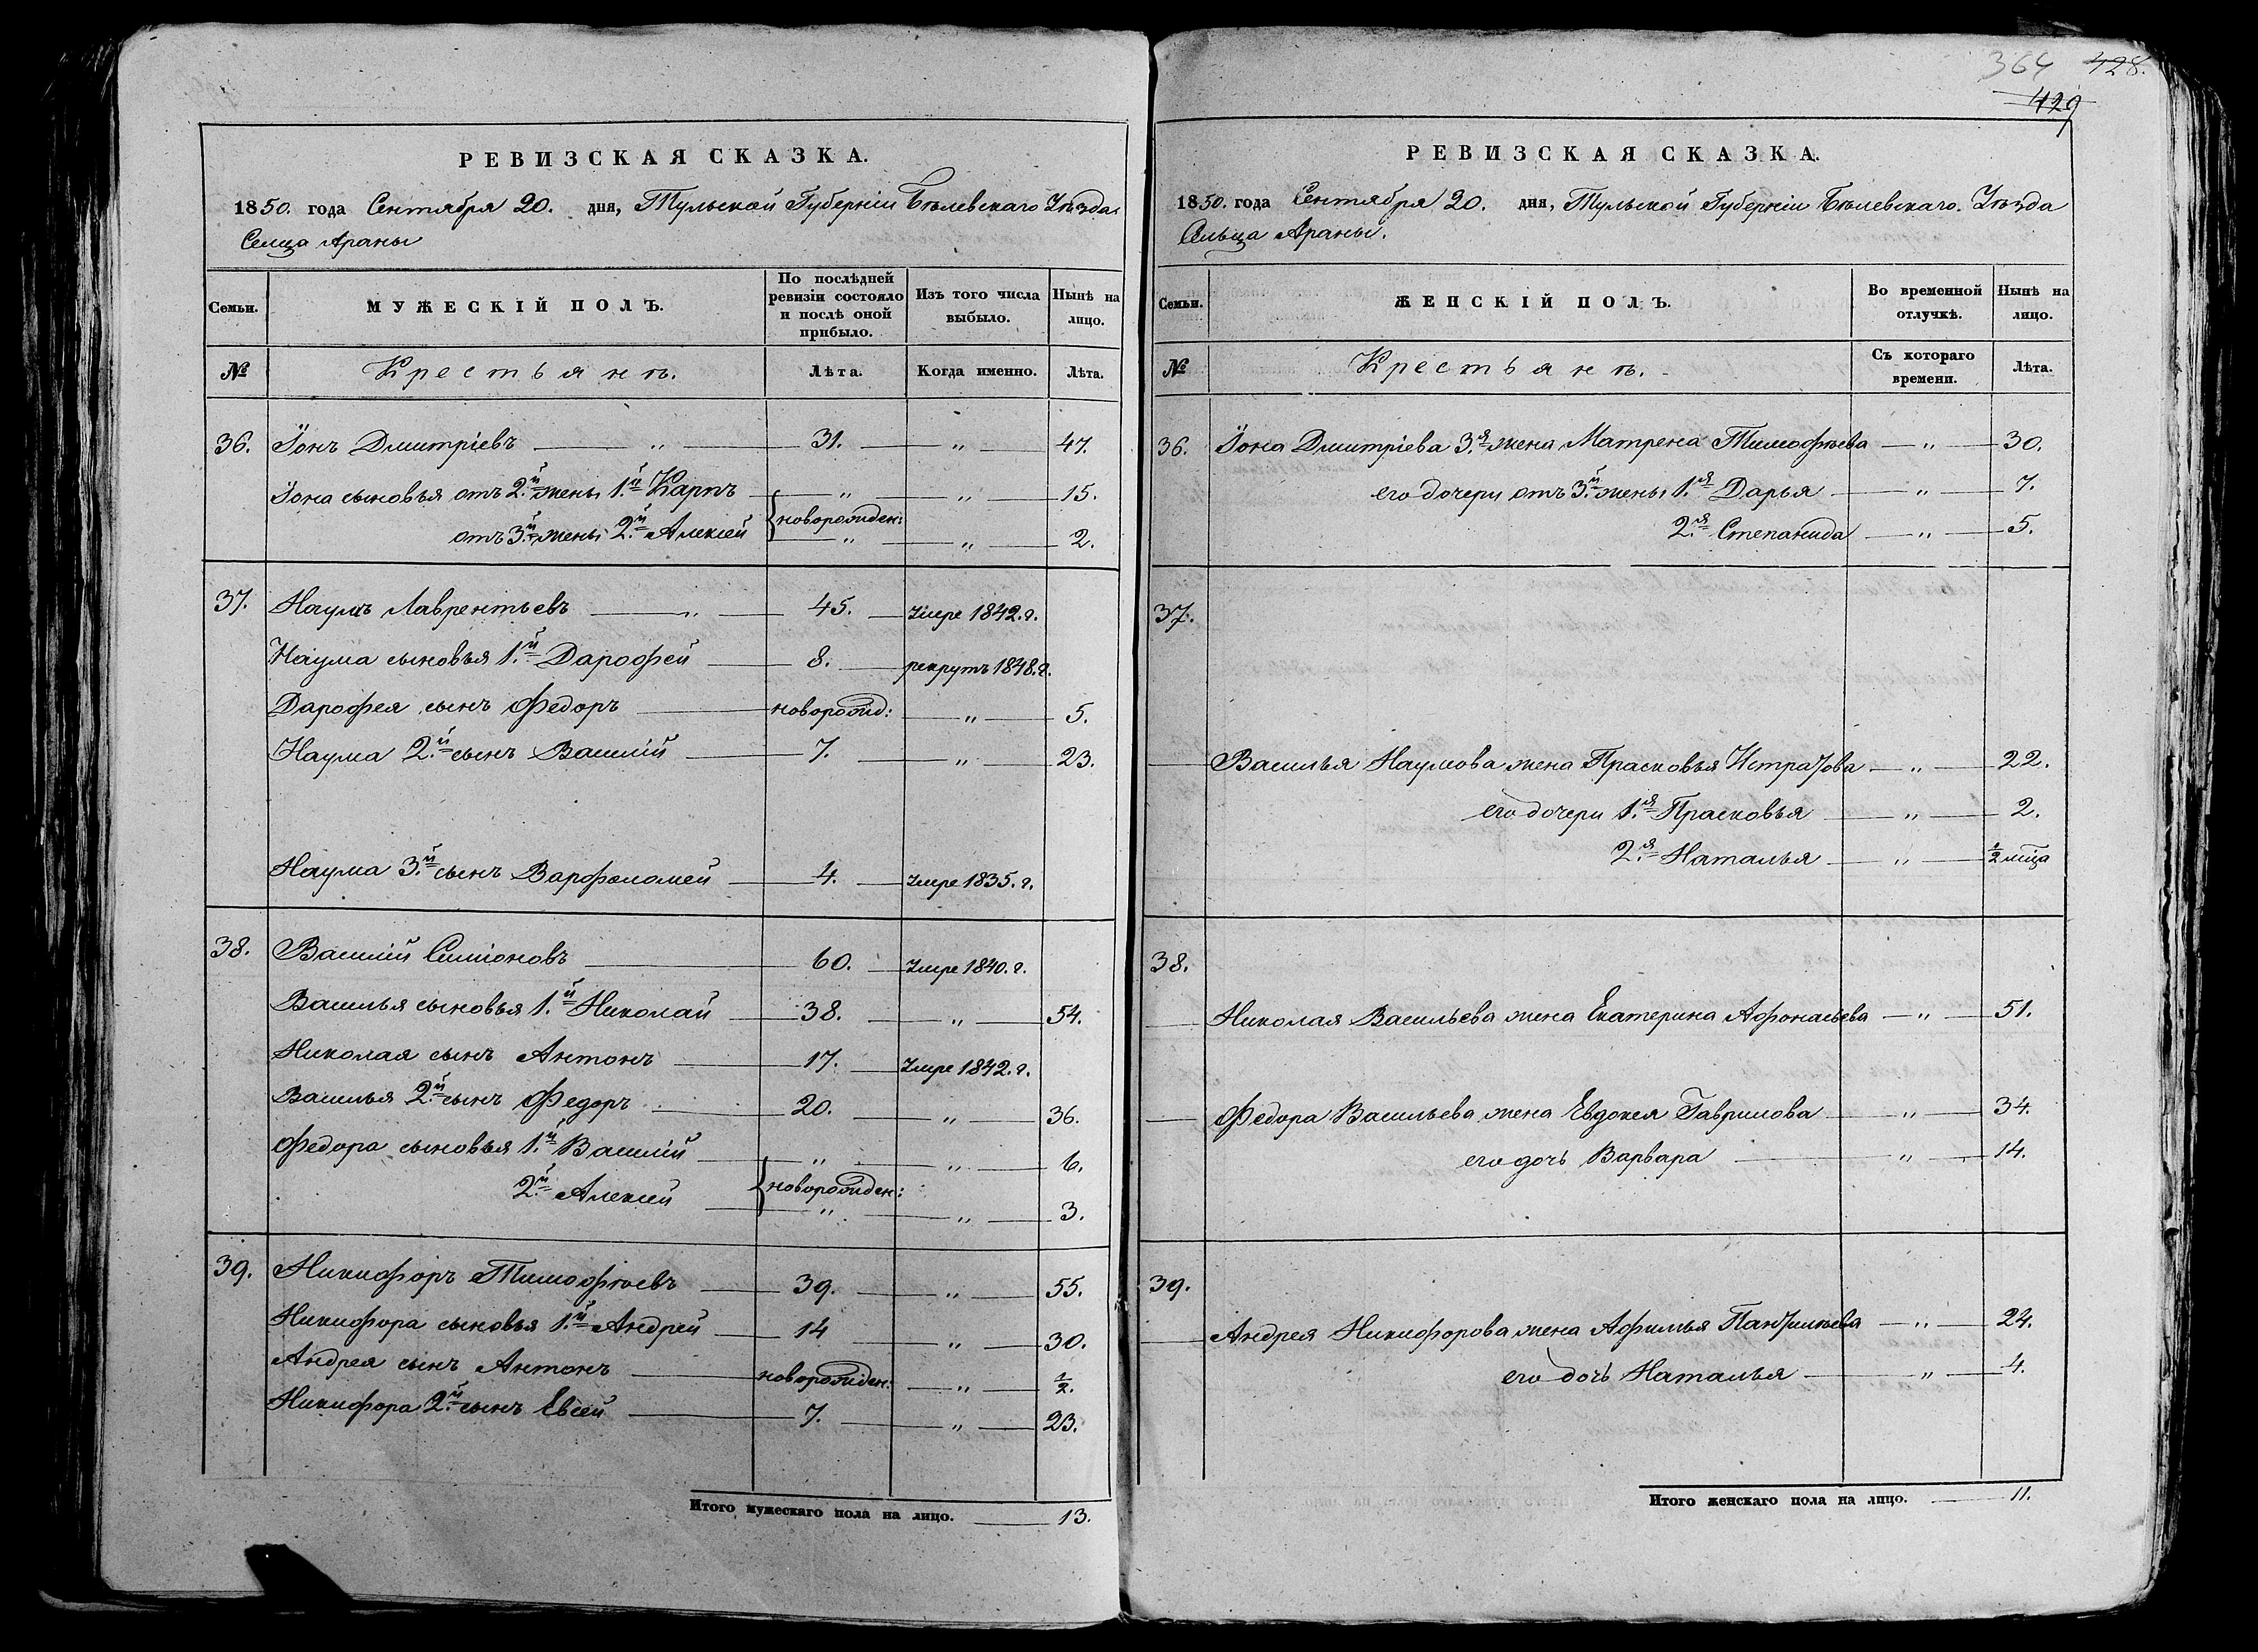 РЕВИЗСКАЯ СКАЗКА.
1850. года Сентября 20. дня, Тульской Губерніи Бѣлевскаго Уѣзда
Сельца Араны
Семьи.
МУЖЕСКІЙ ПОЛЪ.
По послѣдней ревизіи состояло и послѣ оной прибыло.
Изъ того числа выбыло.
Нынѣ на лицо.
№ Крестьянъ. Лѣта. Когда именно. Лѣта.
36. Іонъ Дмитріевъ — " — 31. — " — 47.
Іона сыновья отъ 2.й жены 1.й Карпъ — " — " — 15.
новорожден:
отъ 3.й жены 2.й Алексей — " — " — 2.
37. Наумъ Лаврентьевъ — " — 45. — Умре 1842. г.
Наума сыновья 1.й Дарофей — 8. — рекрутъ 1848. г.
Дарофея сынъ Федоръ — новорожд: — " — 5.
Наума 2.й сынъ Василій — 7. — " — 23.
Наума 3.й сынъ Варфоломей — 4. — Умре 1835. г.
38. Василій Симіоновъ — 60. — Умре 1840. г.
Василья сыновья 1.й Николай — 38. — " — 54.
Николая сынъ Антонъ — 17. — Умре 1842. г.
Василья 2.й сынъ Федоръ — 20. — " — 36.
Федора сыновья 1.й Василій — " — " — 6.
новорожден:
2.й Алексей — " — " — 3.
39. Никифоръ Тимофѣевъ — 39. — " — 55.
Никифора сыновья 1.й Андрей — 14 — " — 30.
Андрея сынъ Антонъ — новорожден: — " — 1/2.
Никифора 2.й сынъ Евсей — 7. — " — 23.
Итого мужескаго пола на лицо. — 13.
364 428.
429
РЕВИЗСКАЯ СКАЗКА.
1850. года Сентября 20. дня, Тульской Губерніи Бѣлевскаго. Уѣзда
Сельца Араны.
Семьи.
ЖЕНСКІЙ ПОЛЪ.
Во временной отлучкѣ.
Нынѣ на лицо.
№ Крестьянъ. Съ котораго времени. Лѣта.
36. Іона Дмитріева 3.я жена Матрена Тимофѣева — " — 30.
его дочери отъ 3.й жены 1.я Дарья — " — 7.
2.я Степанида — " — 5.
37.
Василья Наумова жена Прасковья Истратова — " — 22.
его дочери 1.я Прасковья — " — 2.
2.я Наталья — " — 1/2 мца
38.
Николая Васильева жена Екатерина Афонасьева — " — 51.
Федора Васильева жена Евдокея Гаврилова — " — 34.
его дочь Варвара — " — 14.
39.
Андрея Никифорова жена Афимья Панфильева — " — 24.
его дочь Наталья — " — 4.
Итого женскаго пола на лицо. — 11.